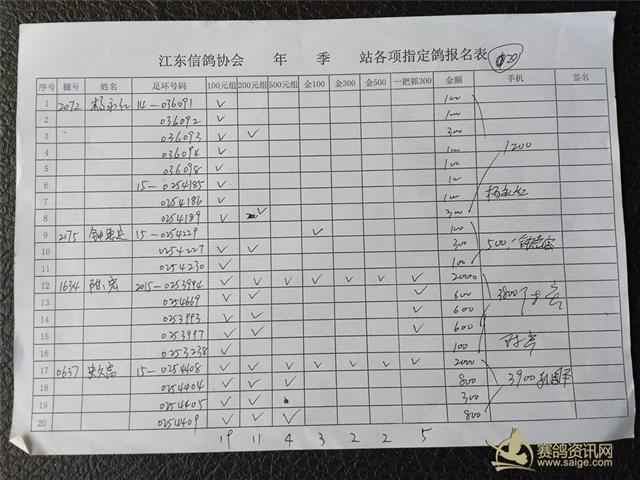 江东信鸽协会 年 季 站各项指定鸽报名表 20
序号 棚号 姓名 足环号码 100元组 200元组 500元组 金100 金300 金500 一把抓300 金额 手机 签名
1 2072 14-036091 ✓ 100
2 036092 ✓ 100
3 036093 ✓ ✓ 300
4 036094 ✓ 100
5 036098 ✓ 100 1200
6 15-0254185 ✓ 100
7 0254186 ✓ 100
8 0254189 ✓ ✓ 300
9 2175 15-0254229 ✓ 100
10 0254227 ✓ ✓ 300 500
11 0254230 ✓ 100
12 1634 2015-0253994 ✓ ✓ ✓ ✓ ✓ ✓ ✓ 2000
13 0254669 ✓ ✓ ✓ 600 3800
14 0253993 ✓ ✓ ✓ 600
15 0253997 ✓ ✓ ✓ 600
16 0253238 ✓ 100
17 0637 15-0254408 ✓ ✓ ✓ ✓ ✓ ✓ ✓ 2000
18 0254404 ✓ ✓ ✓ 800 3900
19 0254405 ✓ ✓ 300
20 0254409 ✓ ✓ ✓ 800
19 11 4 3 2 2 5
赛鸽资讯网
www.saige.com